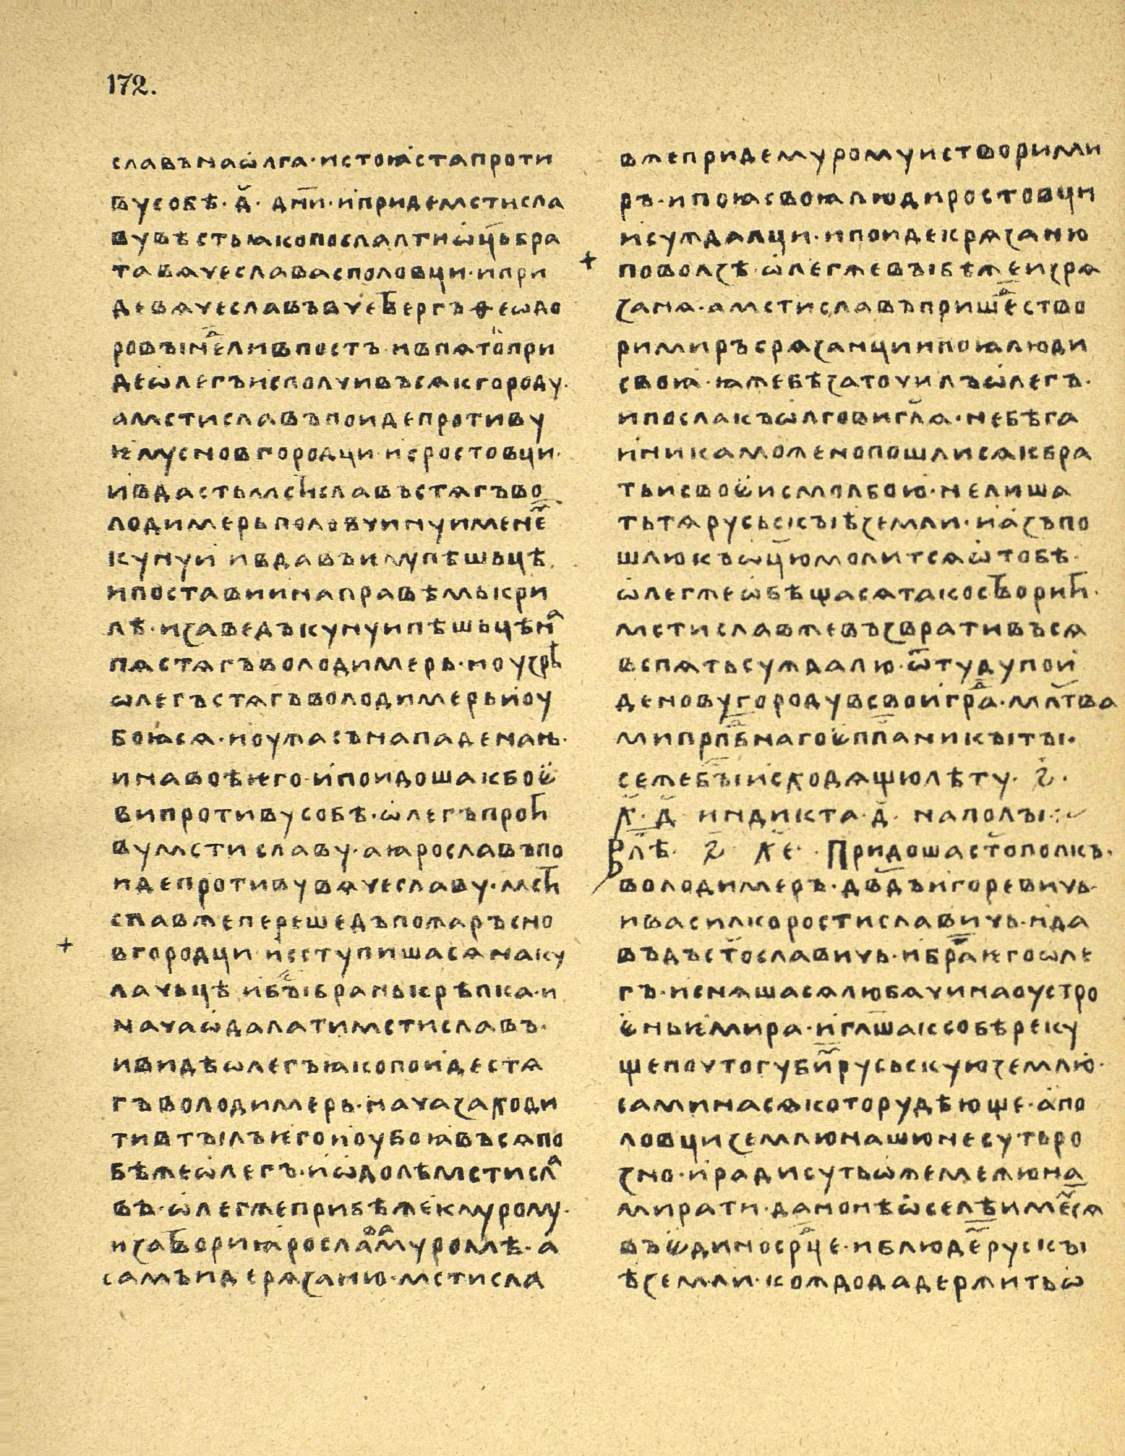 172.
славънаѡлга·истоꙗстапроти
вусобѣ·д҃·дн҃и·ипридемстисла
вувѣстьꙗкопослалтиѡц҃ьбра
тавѧчеславасполовци·ипри
девѧчеславъвчеⷮвергъѳеѡдо
ровꙑнⷣелившпостъ·ивпѧтоⷦпри
деѡлегъисполчивъсѧкгороду·
амстиславъпоидепротиву
ѥмусновгородци·исростовци·
ивдастьмсⷮиславъстѧгъво
лодимерьполовчинуименеⷨ
кунуи ивдавъимупѣшьцѣ
ипоставиинаправѣмькри
лѣ·изаведъкунуипѣшьцѣнⷶ
пѧстѧгъволодимерь·ноузрⷺ
ѡлегъстѧгъволодимерьиоу
боꙗсѧ·иоужасънападенань·
инавоѣѥго·ипоидошакбоѥ
випротивусобѣ·ѡлегъпроⷮи
вумстиславу·аꙗрославъпо
идепротивувѧчеславу·мсⷮи
славжеперешедъпожаръсно
вгородци·исступишасѧнаку
лачьцѣ ибⷭꙑбранькрѣпка·и
начаѡдалатимстиславъ·
ивидѣѡлегъꙗкопоидестѧ
гъволодимерь·начазаходи
тивтꙑлъѥгоиоубоꙗвъсѧпо
бѣжеѡлегъ·иѡдолѣмстислⷶ
въ·ѡлегжеприбѣжекмурому·
изаⷮвориꙗрослаⷡмⷶуромѣ·а
самъидерѧзаню·мстисла
вжепридемуромуистворими
ръ·ипоꙗсвоꙗлюдиростовци
исуждалци·ипоидекрѧзаню
поволзѣ·ѡлегжевꙑбѣжеизрѧ
занѧ·амстиславъпришⷣество
римиръсрѧзанциипоꙗлюди
своꙗ·ꙗжебѣзаточилъѡлегъ·
ипослакъѡлговигл҃ѧ·небѣга
иникаможенопошлисѧкбра
тьисвоѥисмолбою·нелиша
тьтѧрусьскꙑꙗземли·иазъпо
шлюкъѡц҃юмолитсѧѡтобѣ·
ѡлегжеѡбѣщасѧтакосⷮвориⷮи·
мстиславжевъзвративъсѧ
вспѧтьсуждалю·ѿтудупои
деновугородувсвоигрⷣа·мл҃тва
мипрпⷣбнагоѥппⷭаникꙑтꙑ·
сежебⷭꙑисходѧщюлѣту·҂ѕ҃·
х҃·д҃ индикта·д҃· наполꙑ·:
Влⷮѣ· ҂ѕ҃ х҃е҃· Придошасⷮополкъ·
володимеръ·дв҃дъигоревичь·
ивасилкоростиславичь·ида
въдъсⷮославичь·ибрⷮаѥгоѡле
гъ·иснѧшасѧлюбѧчинаоустро
ѥньѥмира·игл҃шаксобѣреку
щепочтогубиⷨрусьскуюземлю·
саминасѧкоторудѣюще·апо
ловциземлюнашюнесутьро
зно·ирадисутьѡжемежюна
мирати·данонѣѡселѣимⷨесѧ
въѥдиносрⷣце·иблюдеⷨрускꙑ
ѣземли·кождодадержитьѡ